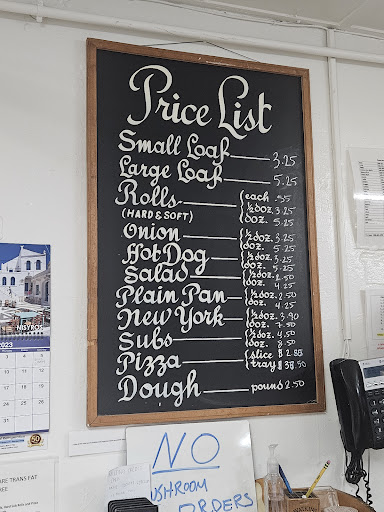 Price List
Small Loaf 3.25
Large Loaf 5.25
Rolls each .55
(HARD & SOFT) ½ doz. 3.25
doz. 5.25
Onion ½ doz. 3.25
doz. 5.25
Hot Dog ½ doz. 3.25
doz. 5.25
Salad ½ doz. 2.50
doz. 4.25
Plain Pan ½ doz. 2.50
doz. 4.25
New York ½ doz. 3.90
doz. 7.50
Subs ½ doz. 4.50
doz. 8.50
Pizza slice $2.85
tray $38.50
Dough pound 2.50
NISYROS
2023
50
NO
USHROOM
ORDERS
ARE TRANS FAT